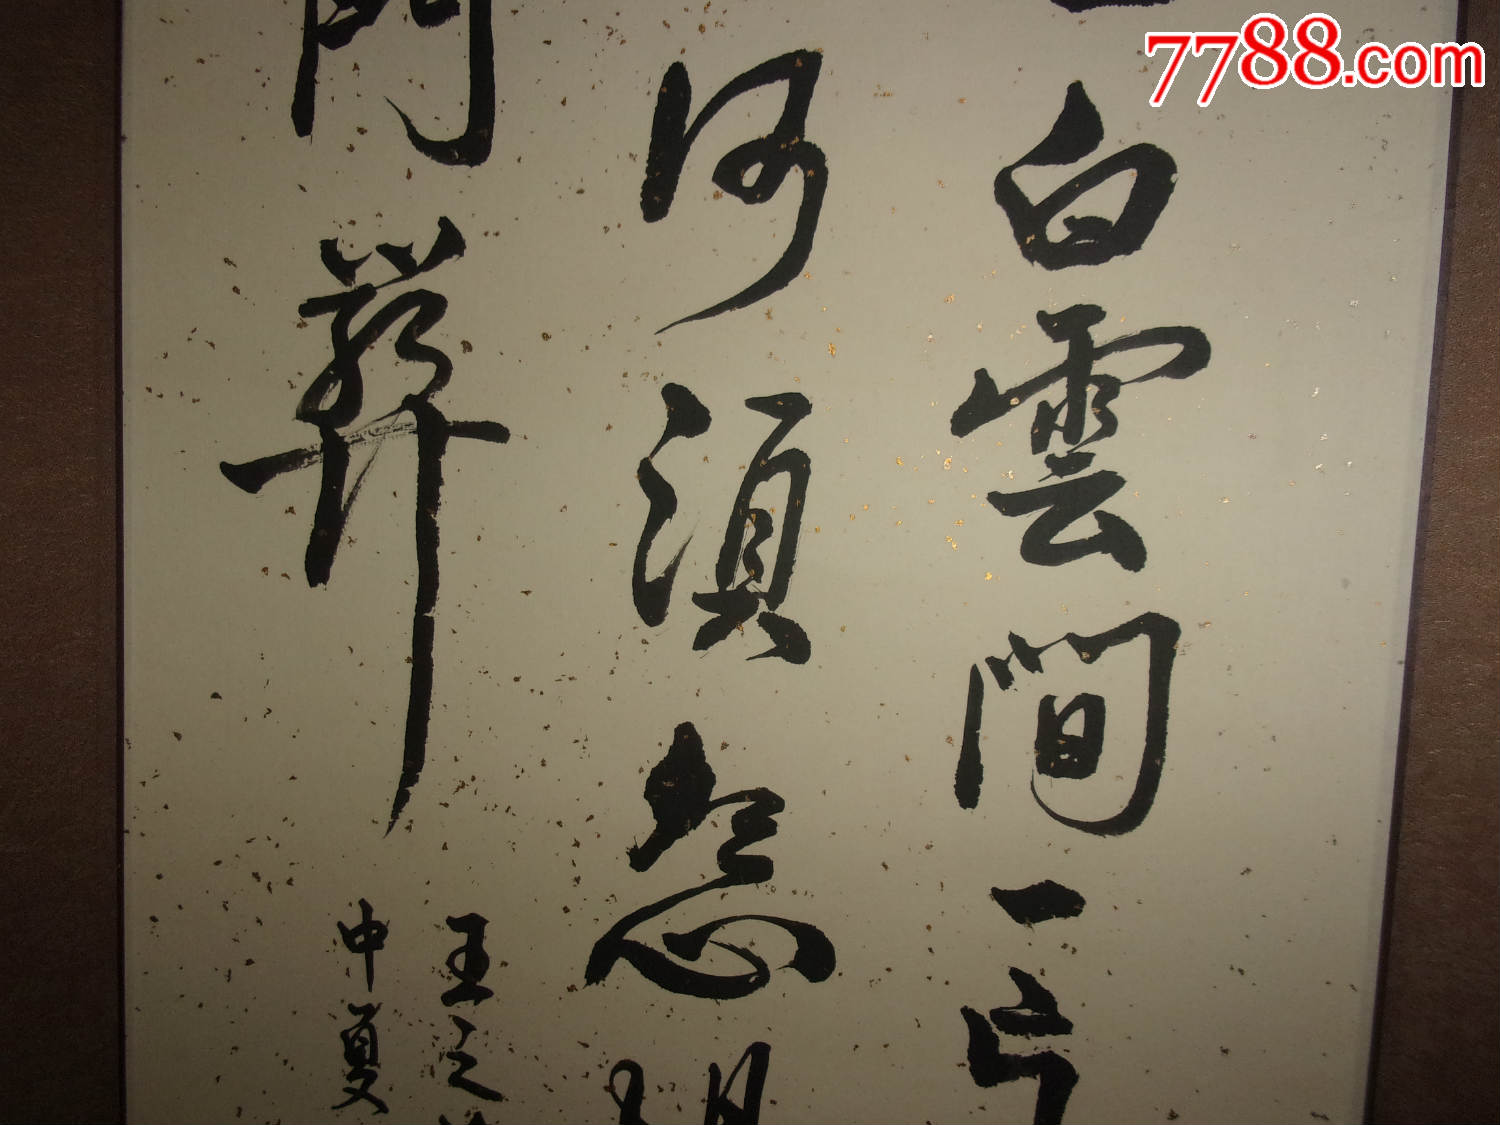 7788.com
白雲間一片
何須怨
門關
王之
中夏